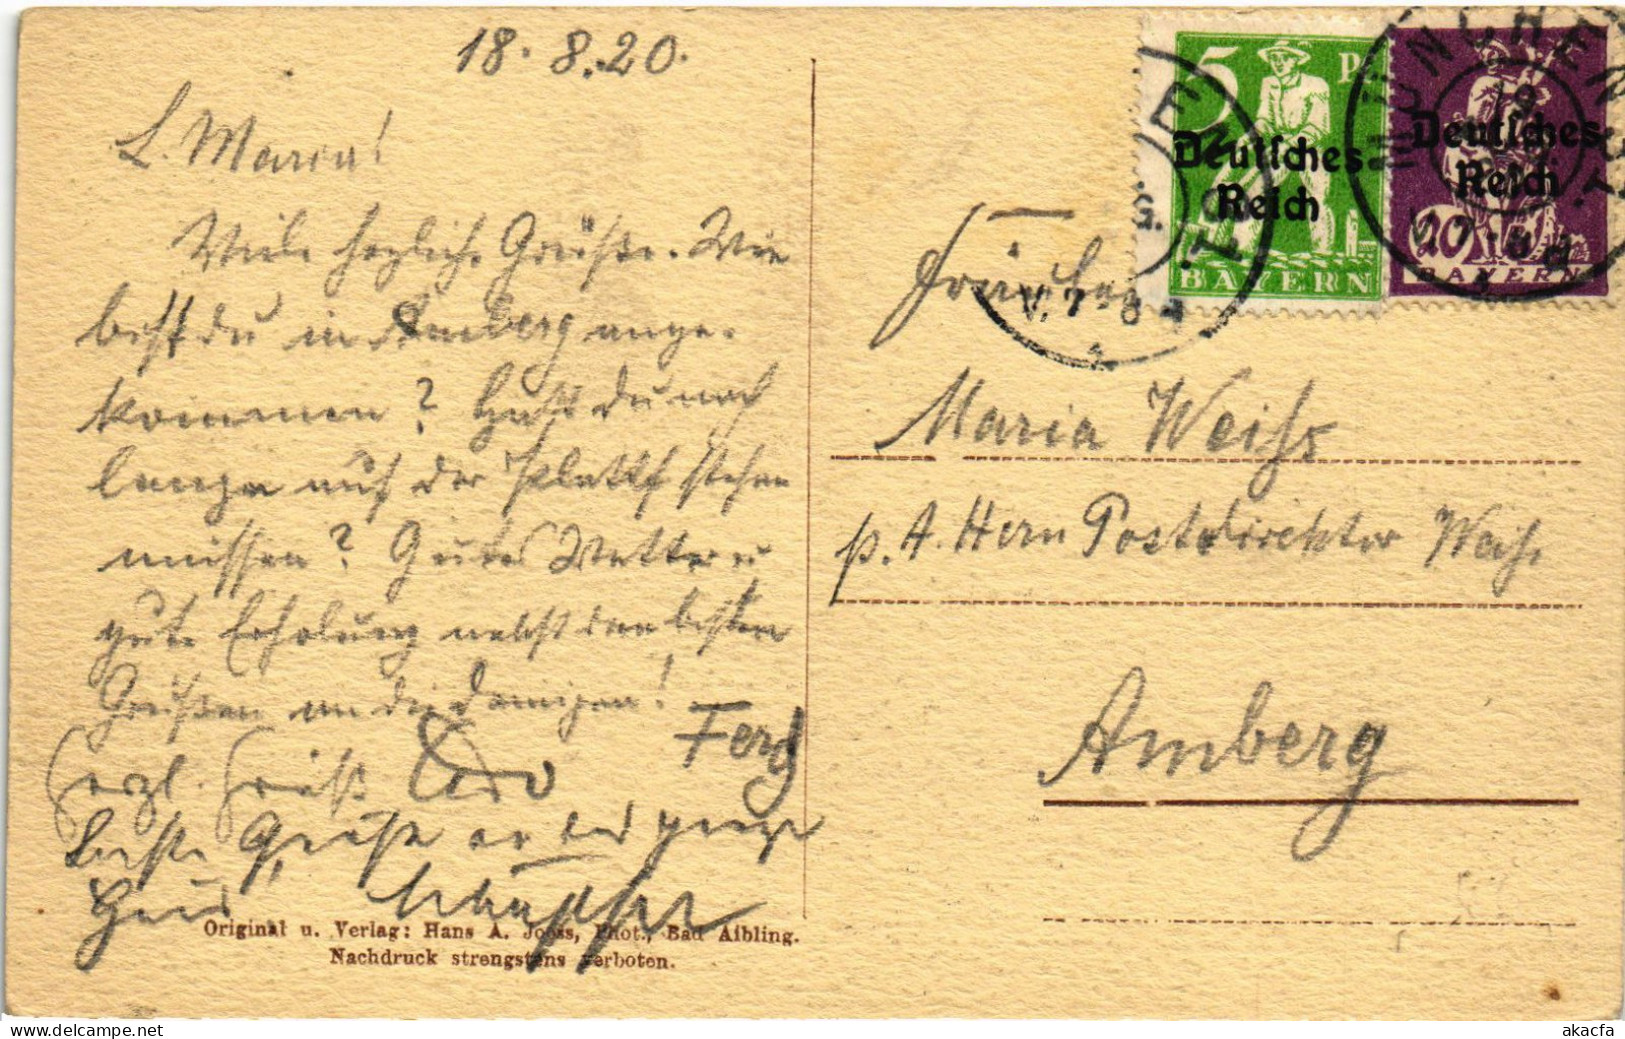 18.8.20.
L. Maria!
Viele herzliche Grüße. Wie
bist du in Amberg ange-
kommen? Hast du noch
lange auf der Plattf stehen
müssen? Gutes Wetter u
gute Erholung nebst den besten
Grüßen an die Deinigen!
Ferd
Herzl. Gruß
Beste Grüße an das ganze
Haus
Original u. Verlag: Hans A. Jooss, Phot., Bad Aibling.
Nachdruck strengstens verboten.
5 P
Deutsches
Reich
BAYERN
Deutsches
Reich
20
BAYERN
MÜNCHEN
V. 7-8
Maria Weiß
p. A. Herrn Postdirektor Weiß.
Amberg
akacfa